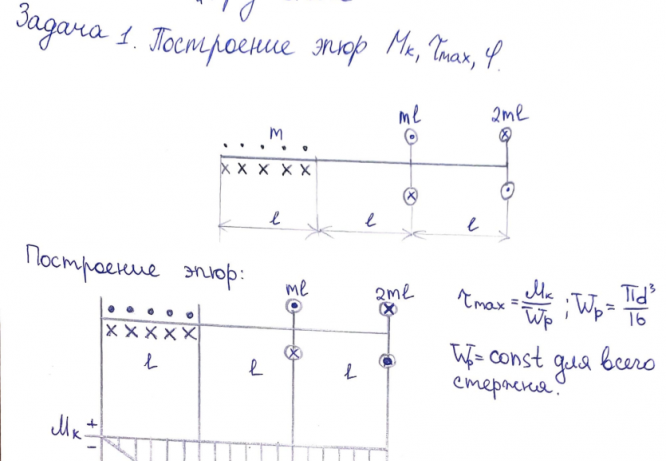 Задача 1. Построение эпюр Mк, τmax, φ.
m
ml
2ml
⊙
⊗
x x x x x
⊗
⊙
l
l
l
Построение эпюр:
ml
2ml
x x x x x
l
l
l
τmax = Mк/Wp ; Wp = πd³/16
Wp = const для всего
стержня.
Mк
+
−